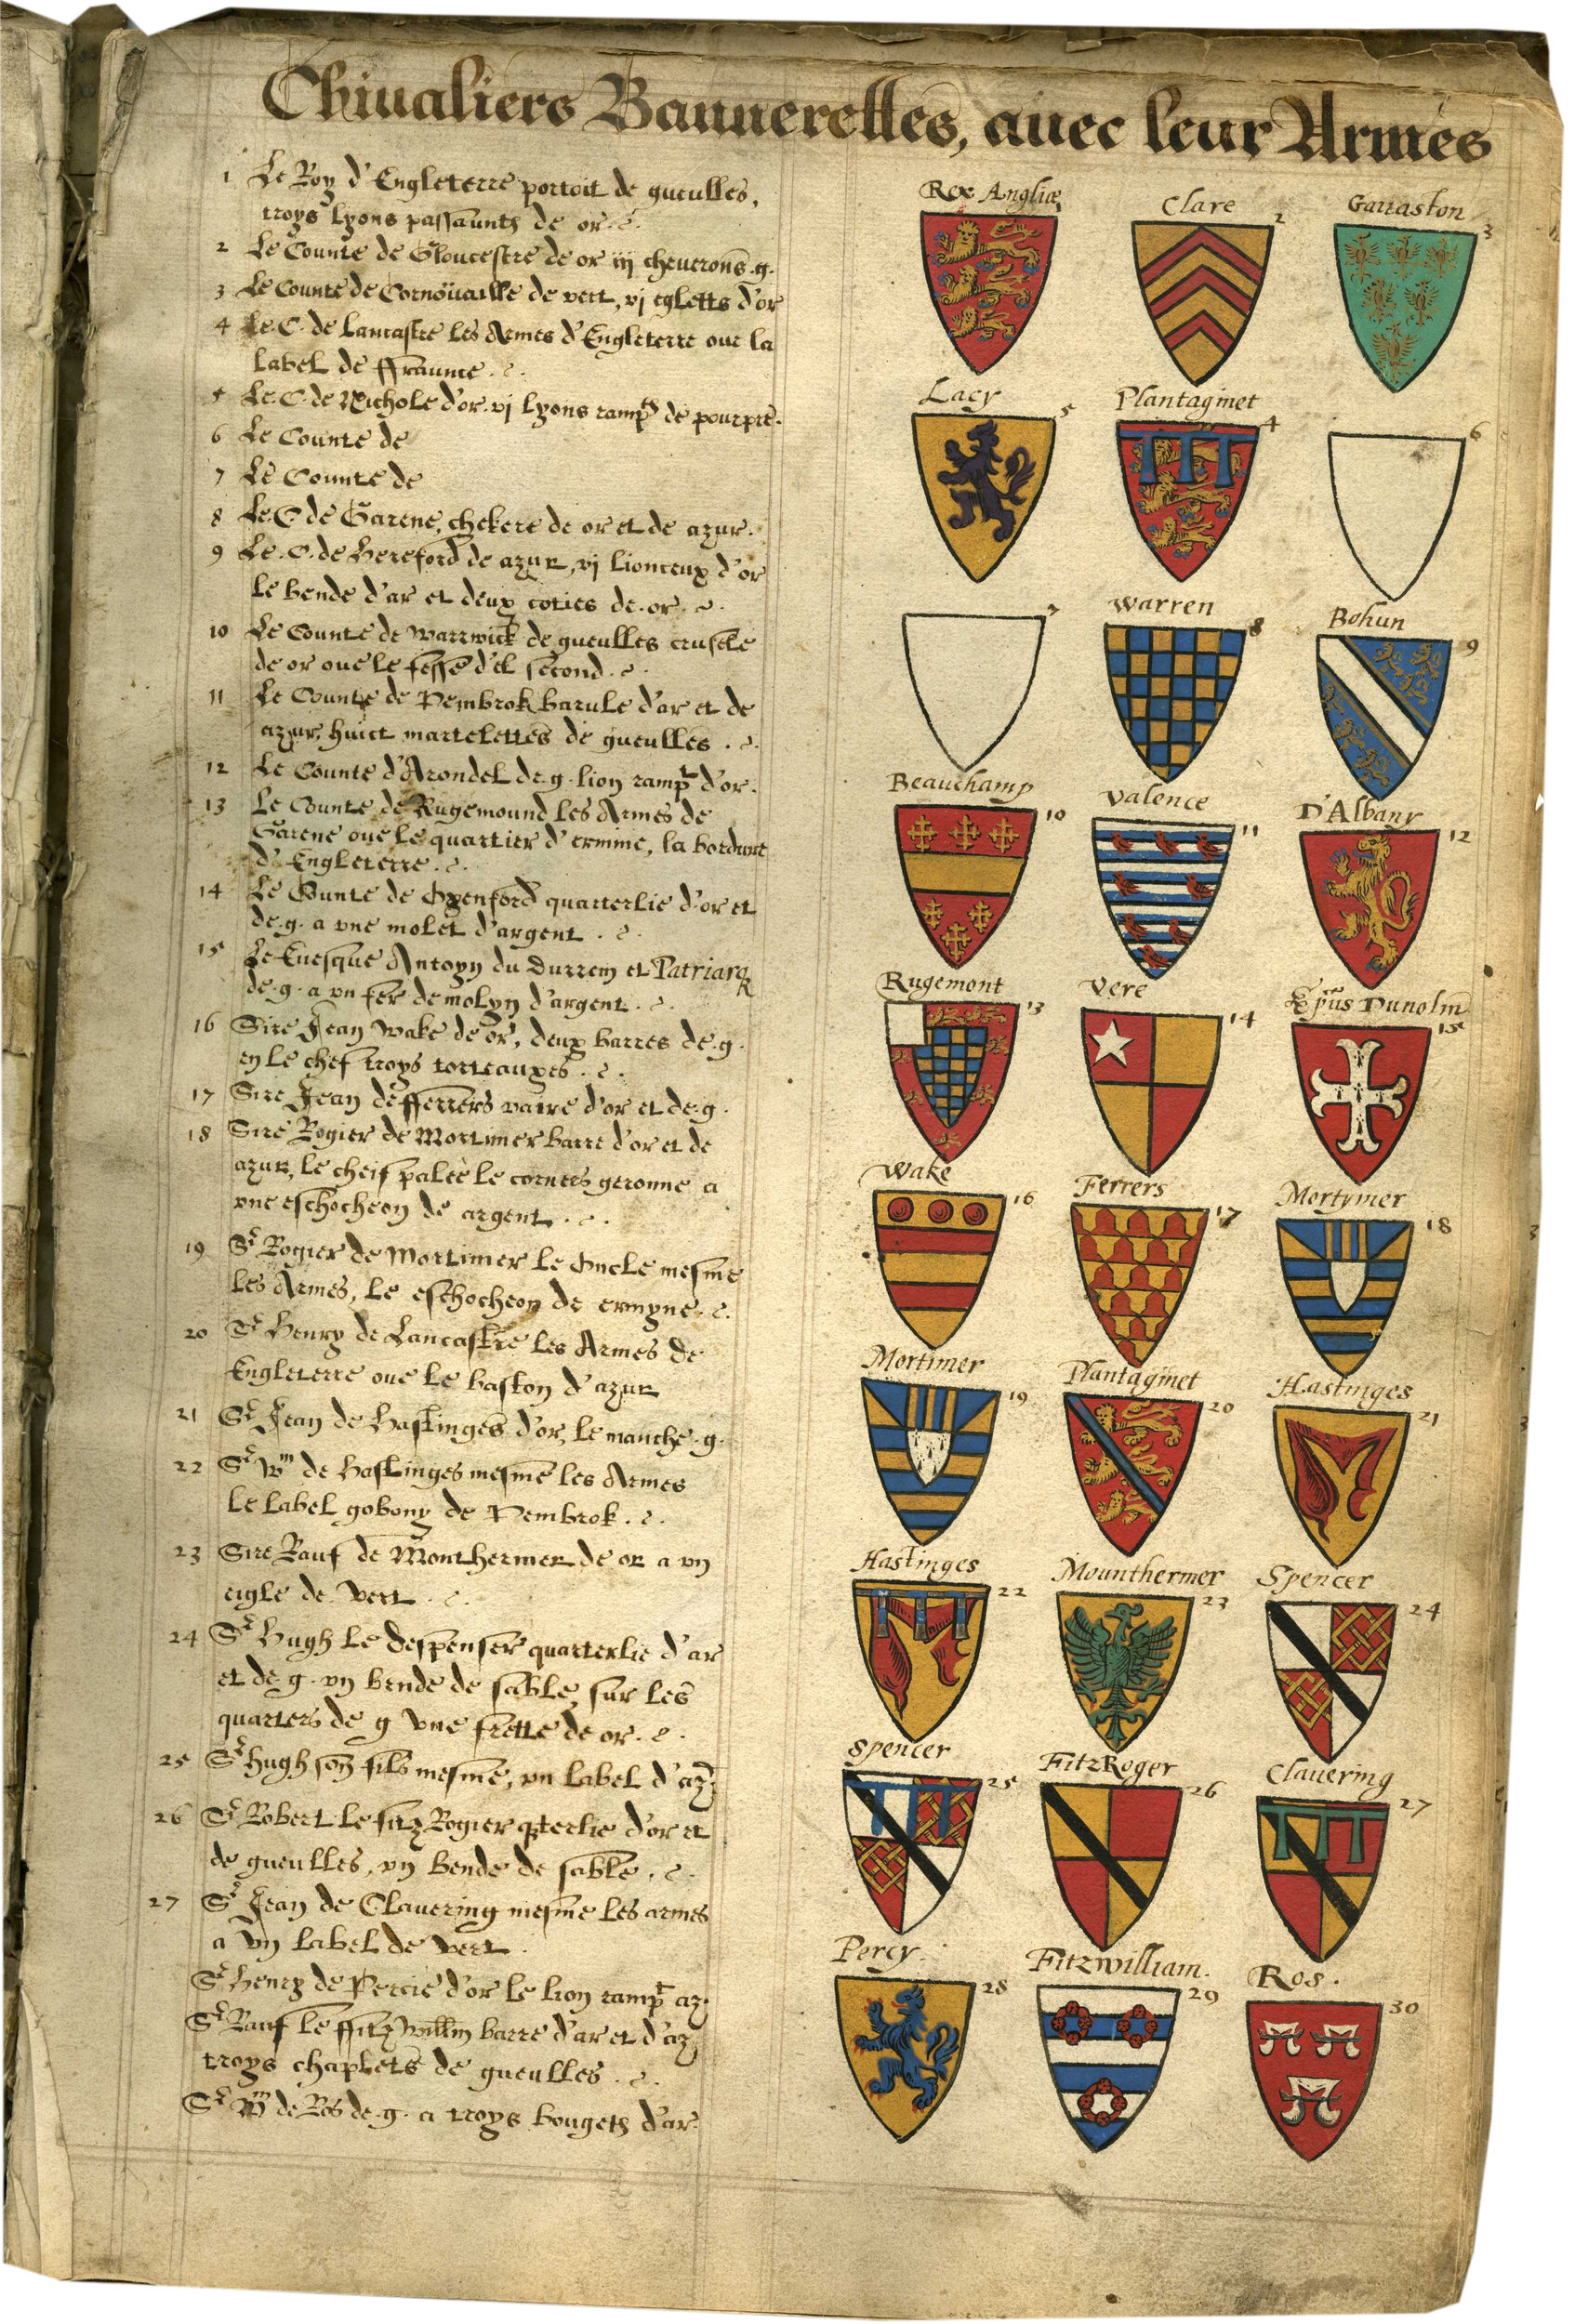 Chiualiers Bannerettes, auec leur Armes
1 Le Roy d'Engleterre portoit de gueulles,
troys lyons passaunts de or.
2 Le Counte de Gloucestre de or iij cheuerons .g.
3 Le Counte de Cornöuaille de vert, vj egletts d'or
4 Le .C. de Lancastre les Armes d'Engleterre oue la
Label de ffraunce.
5 Le .C. de Nichole d'or vj lyons rampts de pourpre.
6 Le Counte de
7 Le Counte de
8 Le .C. de Garene, chekere de or et de azur.
9 Le .C. de Hereford de azur, vj lionceux d'or
le bende d'ar et deux coties de or.
10 Le Counte de Warrwick de gueulles crusele
de or oue le fesse d'el second.
11 Le Counte de Pembrok barule d'ar et de
azur, huict martelettes de gueulles.
12 Le Counte d'Arondel de .g. lion rampt d'or.
13 Le Counte de Rugemound les Armes de
Garene oue le quartier d'ermine, la bordure
d'Engleterre.
14 Le Counte de Oxenford quarterlie d'or et
de .g. a vne molet d'argent.
15 Le Euesque Antoyn du Durrem et Patriarq
de .g. a vn fer de molyn d'argent.
16 Sire Jean Wake de or, deux barres de .g.
en le chef troys torteauxes.
17 Sire Jean de fferrers vaire d'or et de .g.
18 Sire Rogier de Mortimer barre d'or et de
azur, le cheif palee le corners geronne a
vne eschocheon de argent.
19 Sr Rogier de Mortimer le Oncle mesme
les Armes, le eschocheon de ermyne.
20 Sr Henry de Lancastre les Armes de
Engleterre oue le baston d'azur
21 Sr Jean de Hastinges d'or, le manche .g.
22 Sr Wm de Hastinges mesme les Armes
le label gobony de Pembrok.
23 Sire Rauf de Monthermer de or a vn
eigle de Vert.
24 Sr Hugh le despenser quarterlie d'ar
et de g. vn bende de sable, sur les
quarters de g vne frette de or.
25 Sr Hugh son fils mesme, vn label d'az
26 Sr Robert le fitz Rogier qterlie d'or et
de gueulles, vn bende de sable.
27 Sr Jean de Clauering mesme les armes
a vn label de vert.
Sr Henry de Percie d'or le lion rampt az.
Sr Rauf le ffitz Willm barre d'ar et d'az
troys chaplets de gueulles.
Sr Wm de Ros de .g. a troys bougets d'ar.
Rex Angliæ
Clare 2
Gauaston 3
Lacy 5
Plantaginet 4
6
7
Warren 8
Bohun 9
Beauchamp 10
Valence 11
D'Albany 12
Rugemont 13
Vere 14
Epũs Dunolm 15
Wake 16
Ferrers 17
Mortymer 18
Mortimer 19
Plantaginet 20
Hastinges 21
Hastinges 22
Mounthermer 23
Spencer 24
Spencer 25
FitzRoger 26
Clauering 27
Percy. 28
Fitzwilliam. 29
Ros. 30